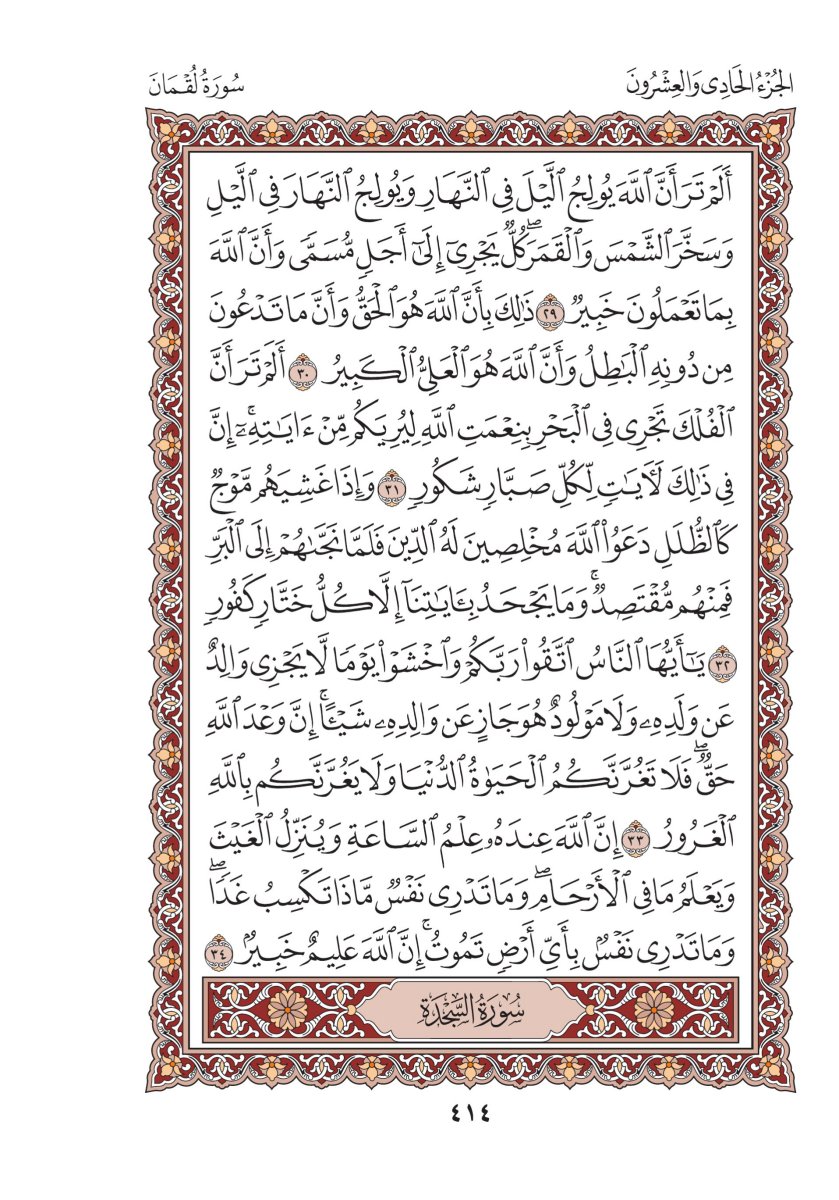 الجُزْءُ الحَادِي وَالعِشْرُونَ
سُورَةُ لُقْمَانَ
أَلَمْ تَرَ أَنَّ ٱللَّهَ يُولِجُ ٱلَّيْلَ فِى ٱلنَّهَارِ وَيُولِجُ ٱلنَّهَارَ فِى ٱلَّيْلِ
وَسَخَّرَ ٱلشَّمْسَ وَٱلْقَمَرَۖ كُلٌّ يَجْرِىٓ إِلَىٰٓ أَجَلٍ مُّسَمًّى وَأَنَّ ٱللَّهَ
بِمَا تَعْمَلُونَ خَبِيرٌ ٢٩ ذَٰلِكَ بِأَنَّ ٱللَّهَ هُوَ ٱلْحَقُّ وَأَنَّ مَا تَدْعُونَ
مِن دُونِهِ ٱلْبَٰطِلُ وَأَنَّ ٱللَّهَ هُوَ ٱلْعَلِىُّ ٱلْكَبِيرُ ٣٠ أَلَمْ تَرَ أَنَّ
ٱلْفُلْكَ تَجْرِى فِى ٱلْبَحْرِ بِنِعْمَتِ ٱللَّهِ لِيُرِيَكُم مِّنْ ءَايَٰتِهِۦٓۚ إِنَّ
فِى ذَٰلِكَ لَءَايَٰتٍ لِّكُلِّ صَبَّارٍ شَكُورٍ ٣١ وَإِذَا غَشِيَهُم مَّوْجٌ
كَٱلظُّلَلِ دَعَوُا۟ ٱللَّهَ مُخْلِصِينَ لَهُ ٱلدِّينَ فَلَمَّا نَجَّىٰهُمْ إِلَى ٱلْبَرِّ
فَمِنْهُم مُّقْتَصِدٌۚ وَمَا يَجْحَدُ بِـَٔايَٰتِنَآ إِلَّا كُلُّ خَتَّارٍ كَفُورٍ
٣٢ يَٰٓأَيُّهَا ٱلنَّاسُ ٱتَّقُوا۟ رَبَّكُمْ وَٱخْشَوْا۟ يَوْمًا لَّا يَجْزِى وَالِدٌ
عَن وَلَدِهِۦ وَلَا مَوْلُودٌ هُوَ جَازٍ عَن وَالِدِهِۦ شَيْـًٔاۚ إِنَّ وَعْدَ ٱللَّهِ
حَقٌّۖ فَلَا تَغُرَّنَّكُمُ ٱلْحَيَوٰةُ ٱلدُّنْيَا وَلَا يَغُرَّنَّكُم بِٱللَّهِ
ٱلْغَرُورُ ٣٣ إِنَّ ٱللَّهَ عِندَهُۥ عِلْمُ ٱلسَّاعَةِ وَيُنَزِّلُ ٱلْغَيْثَ
وَيَعْلَمُ مَا فِى ٱلْأَرْحَامِۖ وَمَا تَدْرِى نَفْسٌ مَّاذَا تَكْسِبُ غَدًاۖ
وَمَا تَدْرِى نَفْسٌۢ بِأَىِّ أَرْضٍ تَمُوتُۚ إِنَّ ٱللَّهَ عَلِيمٌ خَبِيرٌۢ ٣٤
سُورَةُ السَّجْدَةِ
٤١٤